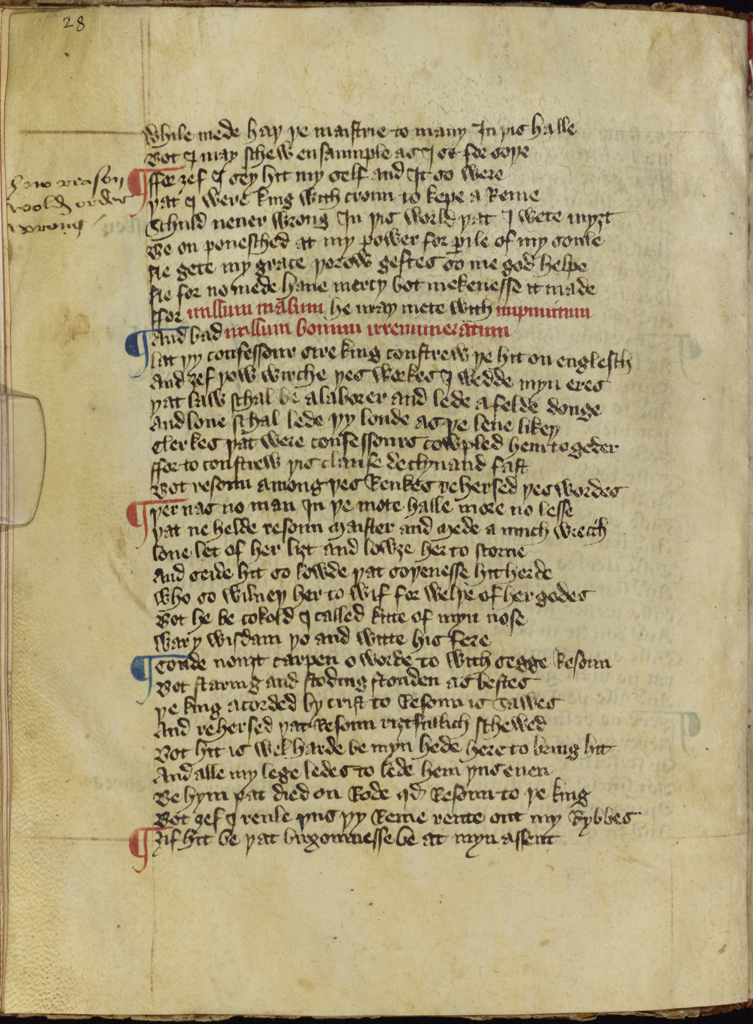 28
While mede haþ þe maistrie to many In þis halle
Bot I may schew ensaumple as I se for soþe
how reason
wolde order
wrong
ffor ȝef I sey hit my self and It so were
þat I were king with croun to kepe a Reme
Schuld neuer wrong In þis world þat I wete myȝt
Be on ponesched at my power for perile of my soule
Ne gete my grace þorow gestes so me god helpe
Ne for no mede haue mercy bot mekenesse it made
ffor nullum malum he may mete with inpunitum
And bad nullum bonum irremuneratum
Lat þy confessour sire king construew þe hit on englesch
And ȝef ȝow wirche þes werkes I wedde myn eres
þat law schal be a laborer and lede a felde donge
And loue schal lede þy londe as þe leue likeþ
Clerkes þat were confessours cowpled hem to geder
ffor to construew þis clause declynand fast
Bot resoun among þes Renkes rehersed þes wordes
þer nas no man In þe mote halle more no lesse
þat ne helde resoun maister and Mede a much wrech
loue let of her liȝt and lowȝe her to scorne
And seide hit so lowde þat soþenesse hit herde
who so wilneþ her to wif for welþe of her godes
Bot he be cokold I called kitte of myn nose
wary wisdam þo and witte his fere
Coude nouȝt carpen o worde to with segge Resoun
Bot staring and stoding stonden as bestes
þe king acorded by crist to Resouns sawes
And rehersed þat Resoun riȝtfullich schewed
Bot hit is wel harde be myn hede here to bring hit
And alle my lege ledes to lede hem þus euen
Be hym þat died on Rode qd Resoun to þe king
Bot ȝef I reule þus þy Reme rente out my Rybbes
Ȝif hit be þat buxomnesse be at myn assent